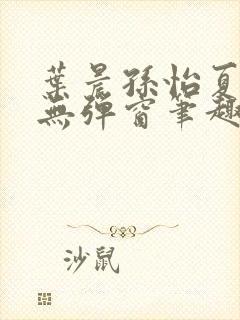 葉晨孫怡夏
無彈窗筆趣
沙鼠